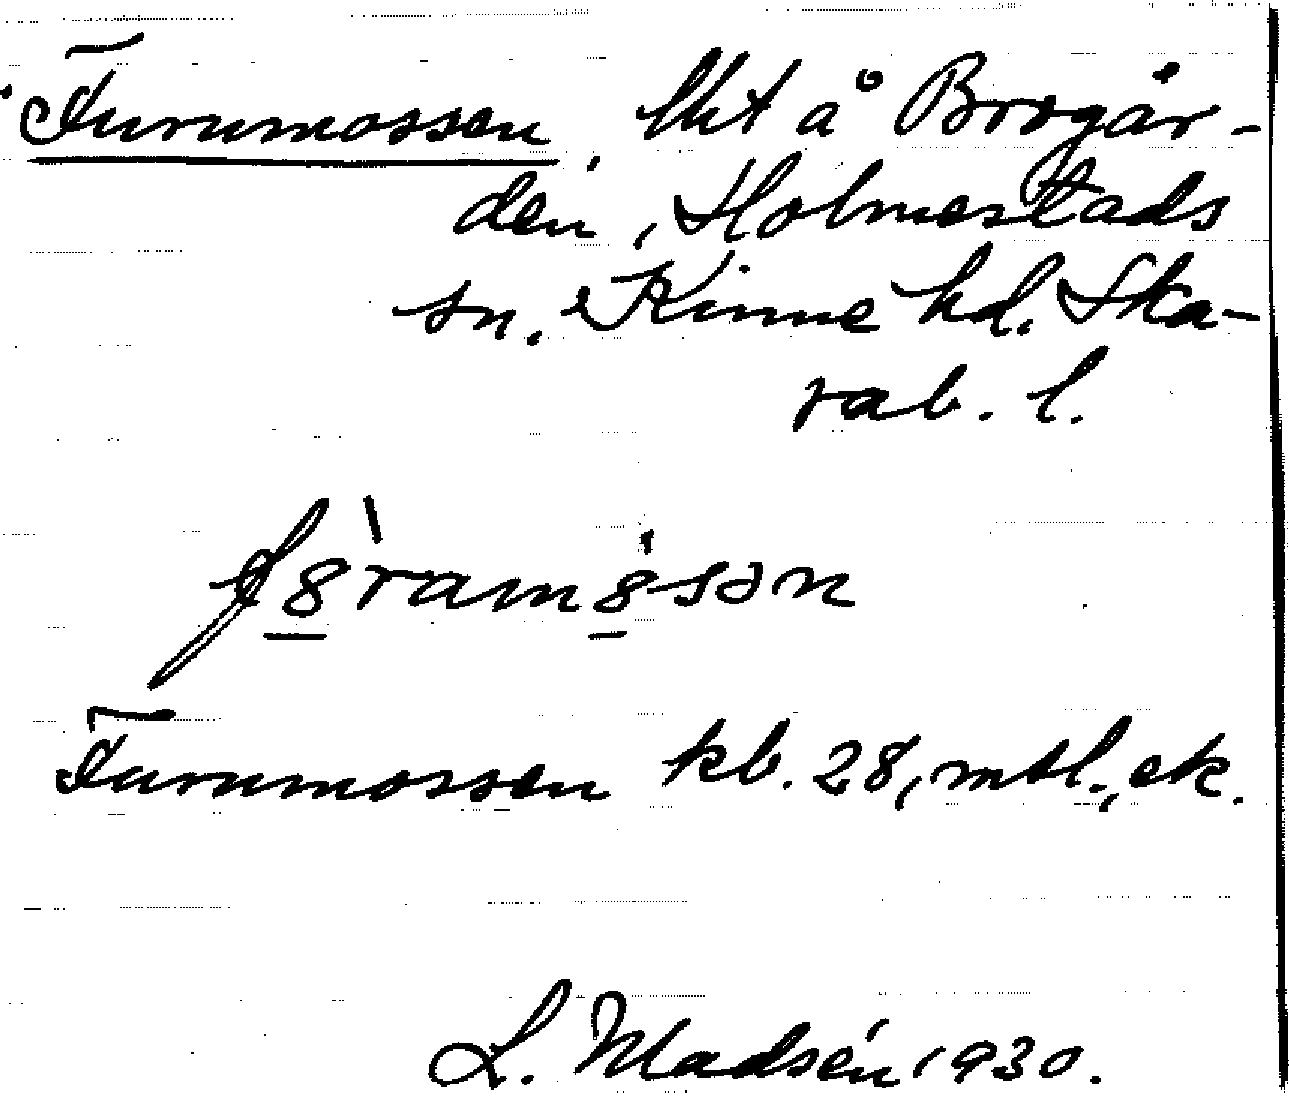 Furumossen, lht å Brogår-
den, Holmestads
sn. Kinne hd. Ska-
rab. l.
f8̲̀ram8̲̍sən
Furumossen kb. 28, mtl., ek.
L. Madsén, 1930.